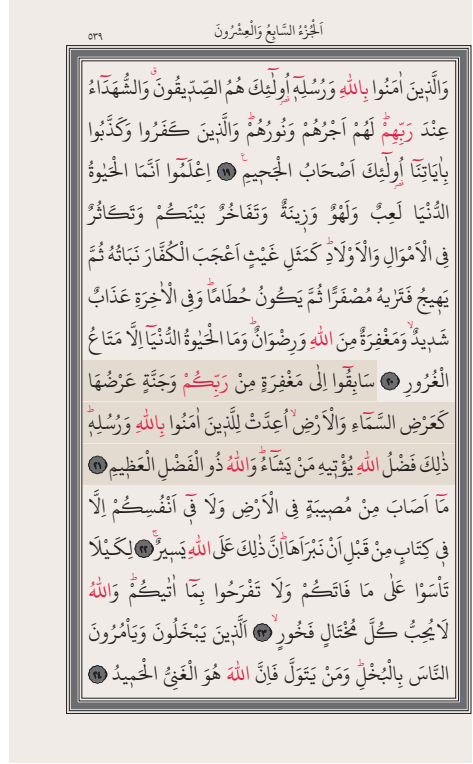 اَلْجُزْءُ السَّابِعُ وَالْعِشْرُونَ
٥٣٩
وَالَّذ۪ينَ اٰمَنُوا بِاللّٰهِ وَرُسُلِه۪ٓ اُو۬لٰٓئِكَ هُمُ الصِّدّ۪يقُونَۗ وَالشُّهَدَٓاءُ
عِنْدَ رَبِّهِمْۜ لَهُمْ اَجْرُهُمْ وَنُورُهُمْۜ وَالَّذ۪ينَ كَفَرُوا وَكَذَّبُوا
بِاٰيَاتِنَٓا اُو۬لٰٓئِكَ اَصْحَابُ الْجَح۪يمِ۟ ﴿١٩﴾ اِعْلَمُٓوا اَنَّمَا الْحَيٰوةُ
الدُّنْيَا لَعِبٌ وَلَهْوٌ وَز۪ينَةٌ وَتَفَاخُرٌ بَيْنَكُمْ وَتَكَاثُرٌ
فِي الْاَمْوَالِ وَالْاَوْلَادِۜ كَمَثَلِ غَيْثٍ اَعْجَبَ الْكُفَّارَ نَبَاتُهُ ثُمَّ
يَه۪يجُ فَتَرٰيهُ مُصْفَرًّا ثُمَّ يَكُونُ حُطَامًاۜ وَفِي الْاٰخِرَةِ عَذَابٌ
شَد۪يدٌۙ وَمَغْفِرَةٌ مِنَ اللّٰهِ وَرِضْوَانٌۜ وَمَا الْحَيٰوةُ الدُّنْيَٓا اِلَّا مَتَاعُ
الْغُرُورِ ﴿٢٠﴾ سَابِقُٓوا اِلٰى مَغْفِرَةٍ مِنْ رَبِّكُمْ وَجَنَّةٍ عَرْضُهَا
كَعَرْضِ السَّمَٓاءِ وَالْاَرْضِۙ اُعِدَّتْ لِلَّذ۪ينَ اٰمَنُوا بِاللّٰهِ وَرُسُلِه۪ۜ
ذٰلِكَ فَضْلُ اللّٰهِ يُؤْت۪يهِ مَنْ يَشَٓاءُۜ وَاللّٰهُ ذُو الْفَضْلِ الْعَظ۪يمِ ﴿٢١﴾
مَٓا اَصَابَ مِنْ مُص۪يبَةٍ فِي الْاَرْضِ وَلَا ف۪ٓي اَنْفُسِكُمْ اِلَّا
ف۪ي كِتَابٍ مِنْ قَبْلِ اَنْ نَبْرَاَهَاۜ اِنَّ ذٰلِكَ عَلَى اللّٰهِ يَس۪يرٌۚ ﴿٢٢﴾ لِكَيْلَا
تَأْسَوْا عَلٰى مَا فَاتَكُمْ وَلَا تَفْرَحُوا بِمَٓا اٰتٰيكُمْۜ وَاللّٰهُ
لَا يُحِبُّ كُلَّ مُخْتَالٍ فَخُورٍۙ ﴿٢٣﴾ اَلَّذ۪ينَ يَبْخَلُونَ وَيَأْمُرُونَ
النَّاسَ بِالْبُخْلِۜ وَمَنْ يَتَوَلَّ فَاِنَّ اللّٰهَ هُوَ الْغَنِيُّ الْحَم۪يدُ ﴿٢٤﴾